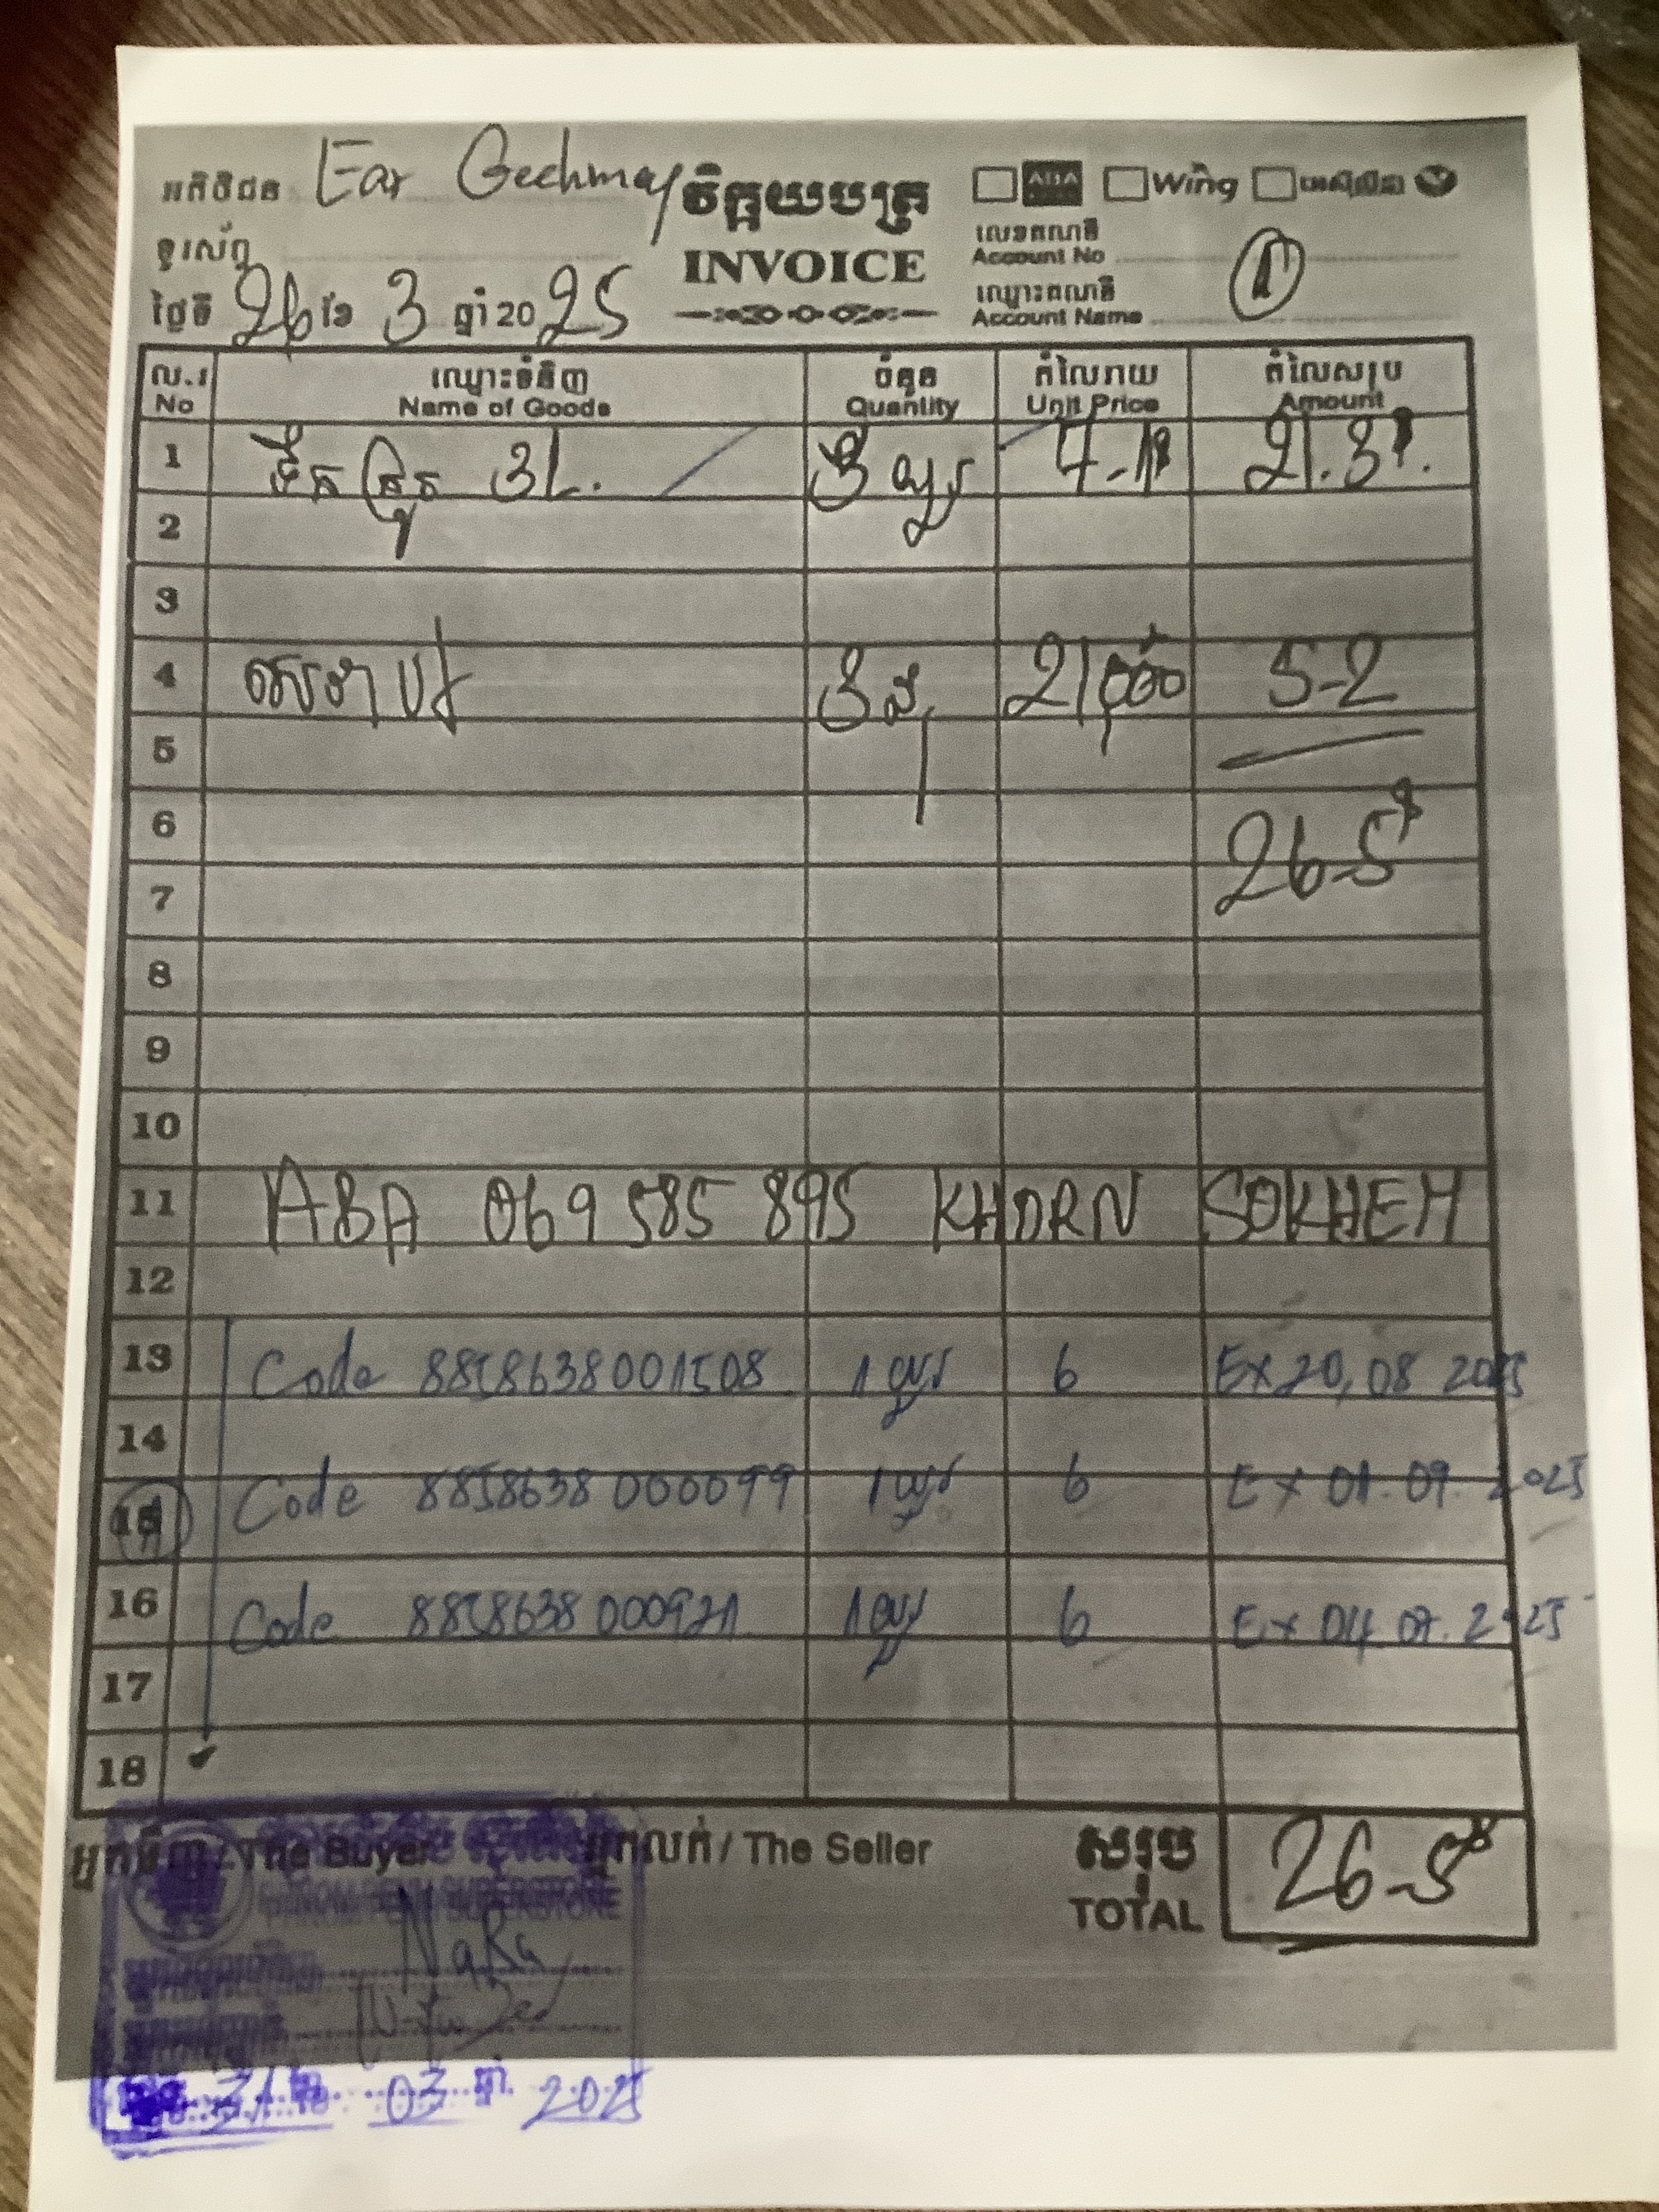 អតិថិជន Ear Gechmay
វិក្កយបត្រ
INVOICE
ABA Wing
ទូរស័ព្ទ
លេខគណនី
Account No
ថ្ងៃទី 26 ខែ 3 ឆ្នាំ 2025
ឈ្មោះគណនី
Account Name
ល.រ ឈ្មោះទំនិញ ចំនួន តំលៃរាយ តំលៃសរុប
No Name of Goods Quantity Unit Price Amount
1 ទឹកត្រូត 3L. 3 យួរ 7-1$ 21.3$.
2
3
4 3 21,000 5-2
5
6 26-5$
7
8
9
10
11 ABA 069 585 895 KHORN SOKHEM
12
13 Code 8858638001508 1 យួរ 6 Ex 20, 08 2025
14
15 Code 8858638000099 1 យួរ 6 Ex 01.09. 2025
16 Code 8858638000921 1 យួរ 6 Ex 04.07.2025
17
18
អ្នកទិញ / The Buyer អ្នកលក់ / The Seller សរុប
TOTAL 26-5$
PHNOM PENH SUPERSTORE
NaRa
31 03 ឆ្នាំ 2025